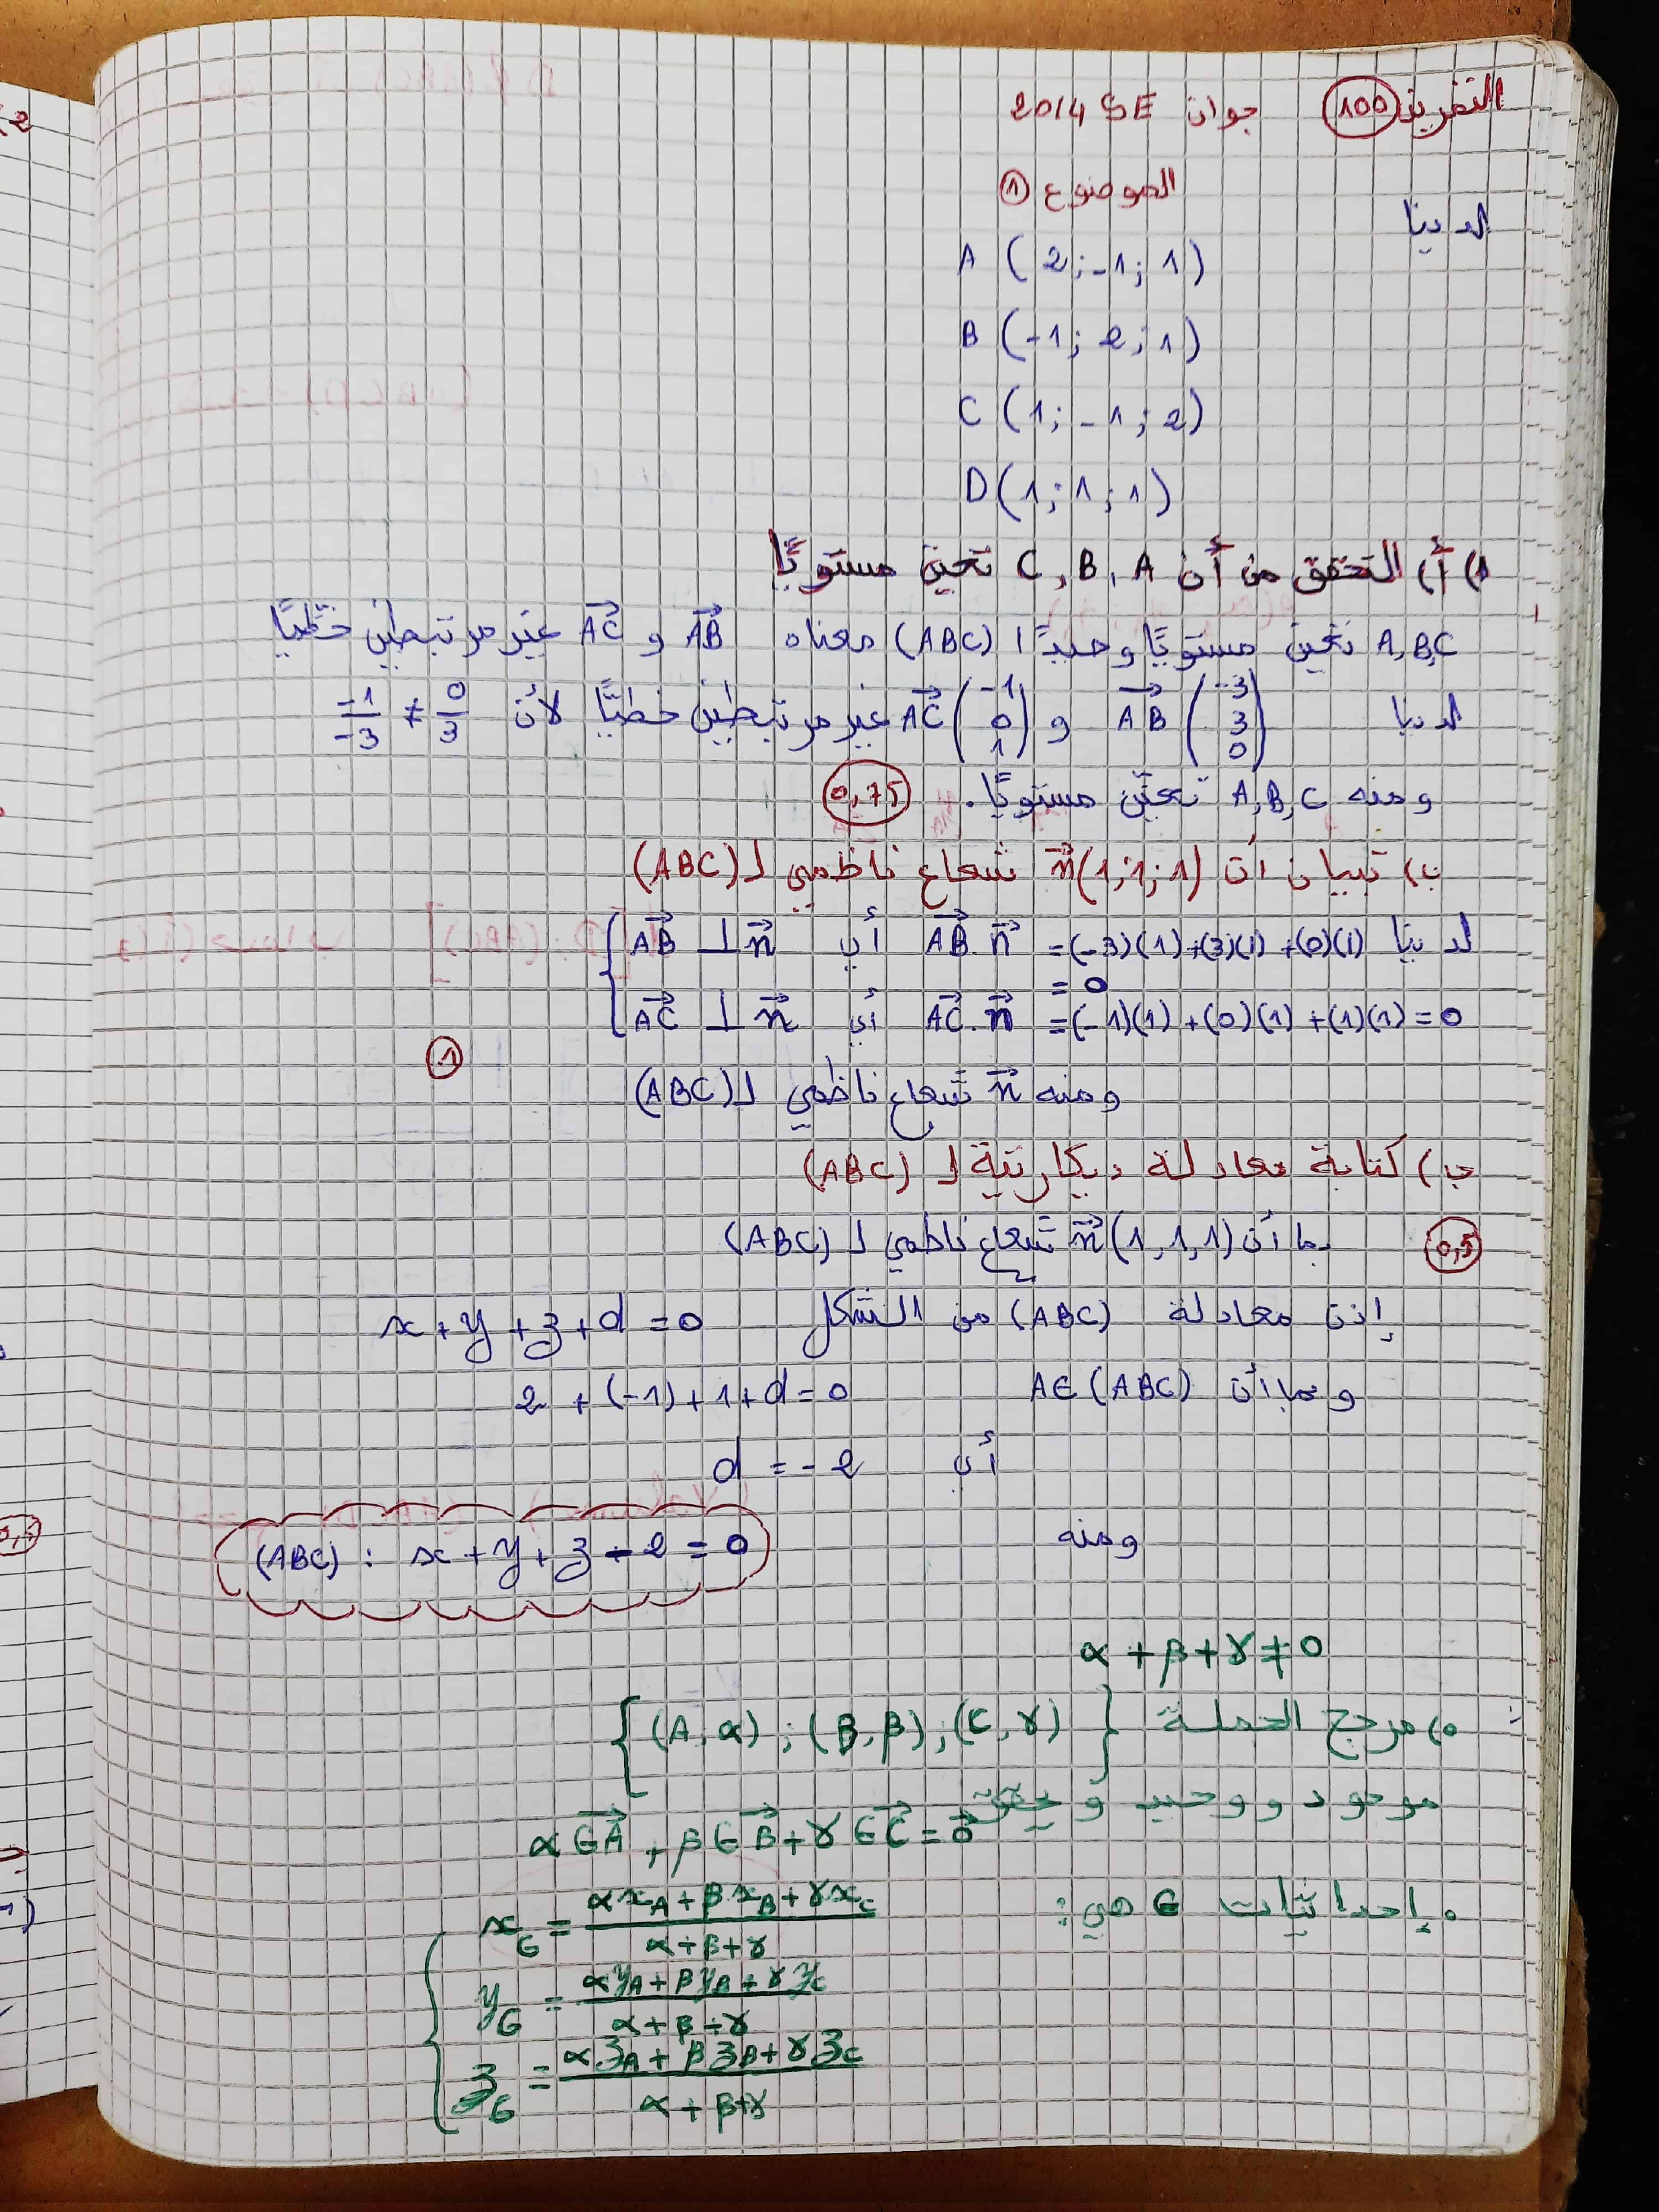 التمرين 100 جوان 2014 SE
الموضوع 1
لدينا
A (2; -1; 1)
B (-1; 2; 1)
C (1; -1; 2)
D (1; 1; 1)
1) أ) التحقق من أن C, B, A تعين مستويًا
A,B,C تعين مستويًا وحيدًا (ABC) معناه AB و AC غير مرتبطين خطيًا
لدينا AB (-3 3 0) و AC (-1 0 1) غير مرتبطين خطيًّا لأن -1/-3 ≠ 0/3
ومنه A,B,C تعيّن مستويًا. 0,75
ب) تبيان أن n(1;1;1) شعاع ناظمي لـ (ABC)
لدينا AB.n = (-3)(1)+(3)(1)+(0)(1) = 0 أي AB ⊥ n
AC.n = (-1)(1)+(0)(1)+(1)(1) = 0 أي AC ⊥ n
1
ومنه n شعاع ناظمي لـ (ABC)
ج) كتابة معادلة ديكارتية لـ (ABC)
0,5 بما أن n(1,1,1) شعاع ناظمي لـ (ABC)
إذن معادلة (ABC) من الشكل x+y+z+d=0
وبما أن A∈(ABC) 2+(-1)+1+d=0
أي d = -2
ومنه (ABC) : x+y+z-2=0
α+β+γ≠0
مرجح الجملة {(A,α);(B,β);(C,γ)}
موجود ووحيد و يحقق
αGA+βGB+γGC=0
وإحداثيات G هي:
x_G = (αx_A+βx_B+γx_C)/(α+β+γ)
y_G = (αy_A+βy_B+γy_C)/(α+β+γ)
z_G = (αz_A+βz_B+γz_C)/(α+β+γ)